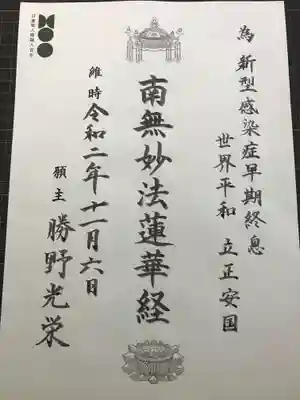 為 新型感染症早期終息
世界平和 立正安国
南無妙法蓮華経
維時 令和二年十一月六日
願主 勝野光栄